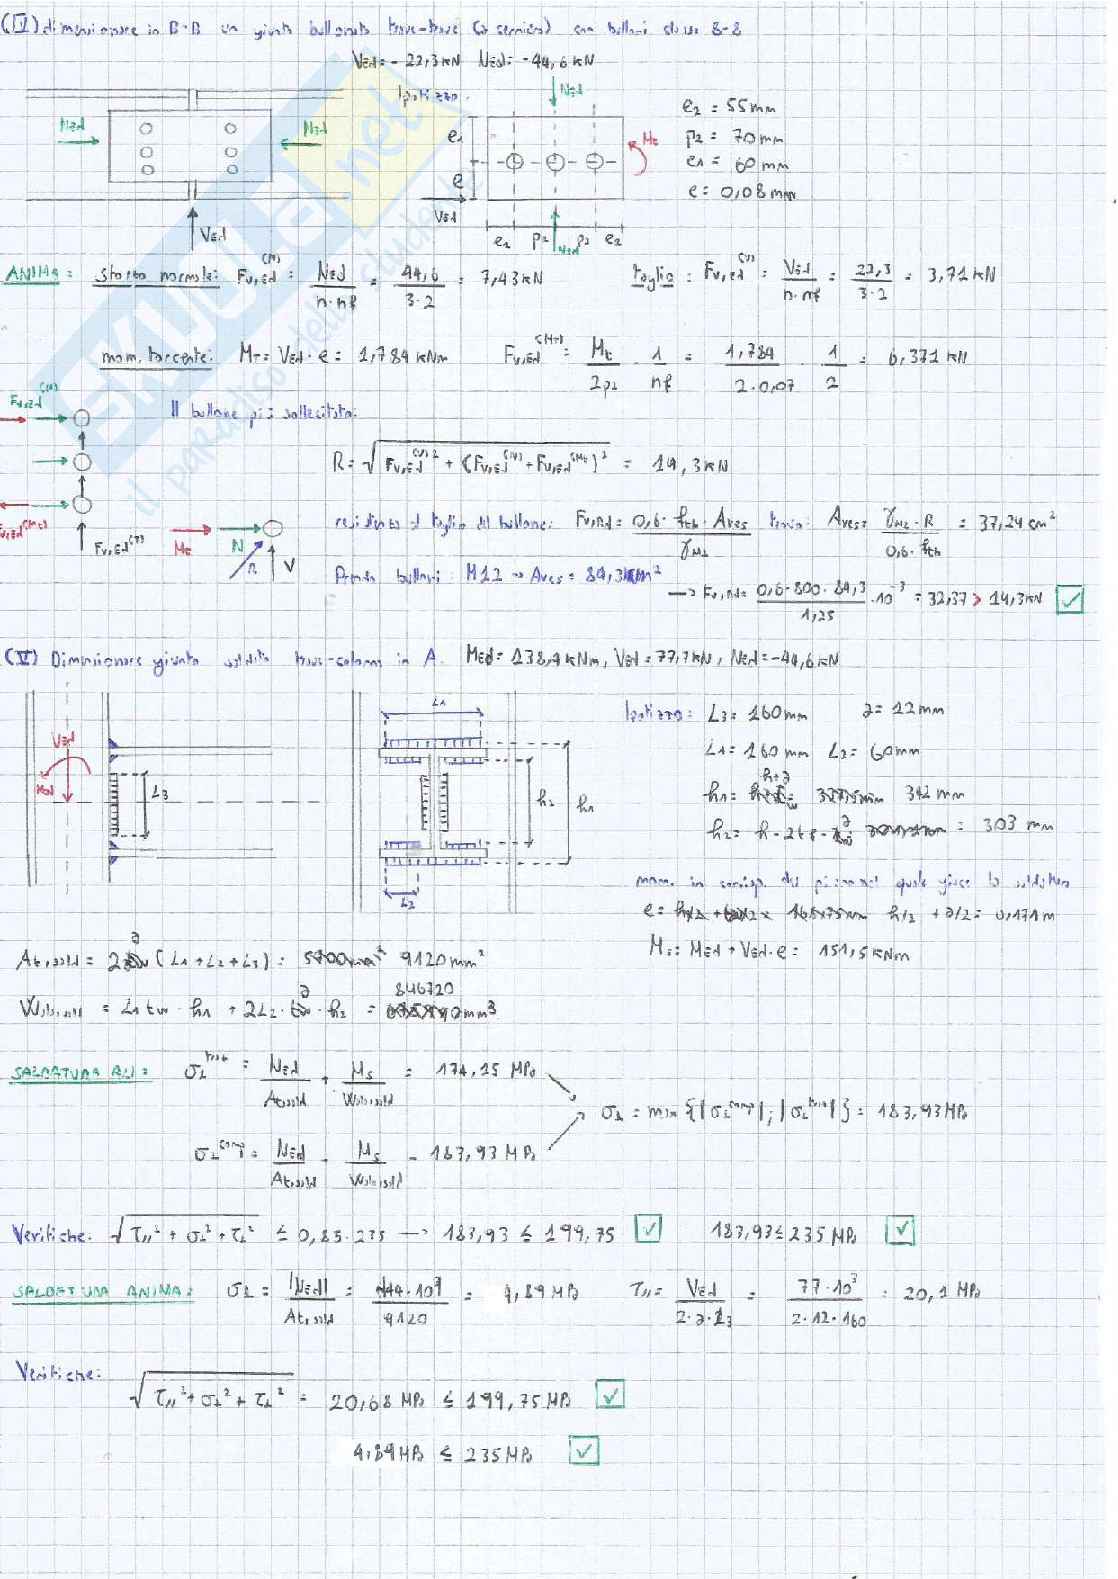 (IV) dimensionare in B-B un giunto bullonato trave-trave (a cerniera) con bulloni classe 8-8
VEd = - 22,3 kN NEd = -44,6 kN
Ipotizzo:
NEd NEd
VEd
NEd
e1
e
Mt
VEd
e2 p2 NEd p2 e2
e2 = 55 mm
p2 = 70 mm
e1 = 60 mm
e = 0,08 mm
ANIMA: sforzo normale: Fv,Ed(N) = NEd / n·nf = 44,6 / 3·2 = 7,43 kN taglio: Fv,Ed(V) = VEd / n·nf = 22,3 / 3·2 = 3,71 kN
mom. torcente: MT = VEd · e = 1,784 kNm Fv,Ed(Mt) = Mt / 2p2 · 1 / nf = 1,784 / 2·0,07 · 1 / 2 = 6,371 kN
Fv,Ed(N)
Il bullone più sollecitato:
R = √ Fv,Ed(V)² + (Fv,Ed(N) + Fv,Ed(Mt))² = 14,3 kN
Fv,Ed(Mt)
Fv,Ed(V)
Mt N R V
resistenza a taglio del bullone: Fv,Rd = 0,6 · ftb · Ares / γM2 trovo: Ares = γM2 · R / 0,6 · ftb = 37,24 cm²
Prendo bulloni M12 → Ares = 84,3 mm²
→ Fv,Rd = 0,6·800·84,3 / 1,25 · 10⁻³ = 32,37 > 14,3 kN ✓
(V) Dimensionare giunto saldato trave-colonna in A. MEd = 138,4 kNm, VEd = 77,7 kN, NEd = -44,6 kN
VEd
L3
L1
h2 h1
L2
Ipotizzo: L3 = 160 mm a = 12 mm
L1 = 160 mm L2 = 60 mm
h1 = h+a 342 mm
h2 = h - 2tf - a = 303 mm
mom. in corrisp. del piano nel quale giace la saldatura
e = h/2 + a/2 = 0,171 m
Ms = MEd + VEd · e = 151,5 kNm
Atr,sald = 2a (L1 + L2 + L3) = 9120 mm²
846720
= L1 tw · h1 + 2L2 · a · h2 = mm³
SALDATURA ALI: σ⊥ = NEd / Atr,sald + Ms = 174,15 MPa
σ⊥ = min{|σ⊥comp|; |σ⊥traz|} = 183,93 MPa
σ⊥comp = NEd / Atr,sald - Ms - 183,93 MPa
Verifiche: √ τ//² + σ⊥² + τ⊥² ≤ 0,85·235 → 183,93 ≤ 199,75 ✓ 183,93 ≤ 235 MPa ✓
SALDATURA ANIMA: σ⊥ = |NEd| / Atr,sald = / 9120 = 4,89 MPa τ// = VEd / 2·a·L3 = 77·10³ / 2·12·160 = 20,1 MPa
Verifiche:
√ τ//² + σ⊥² + τ⊥² = 20,68 MPa ≤ 199,75 MPa ✓
4,89 MPa ≤ 235 MPa ✓
skuola.net
il paradiso dello studente